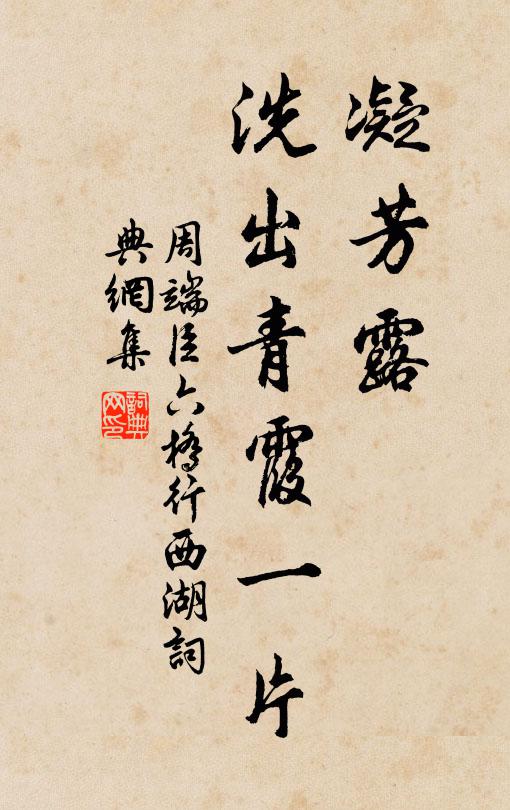 凝芳露
洗出青霞一片
周端臣六橋行西湖詞
典網集
詞典
网印